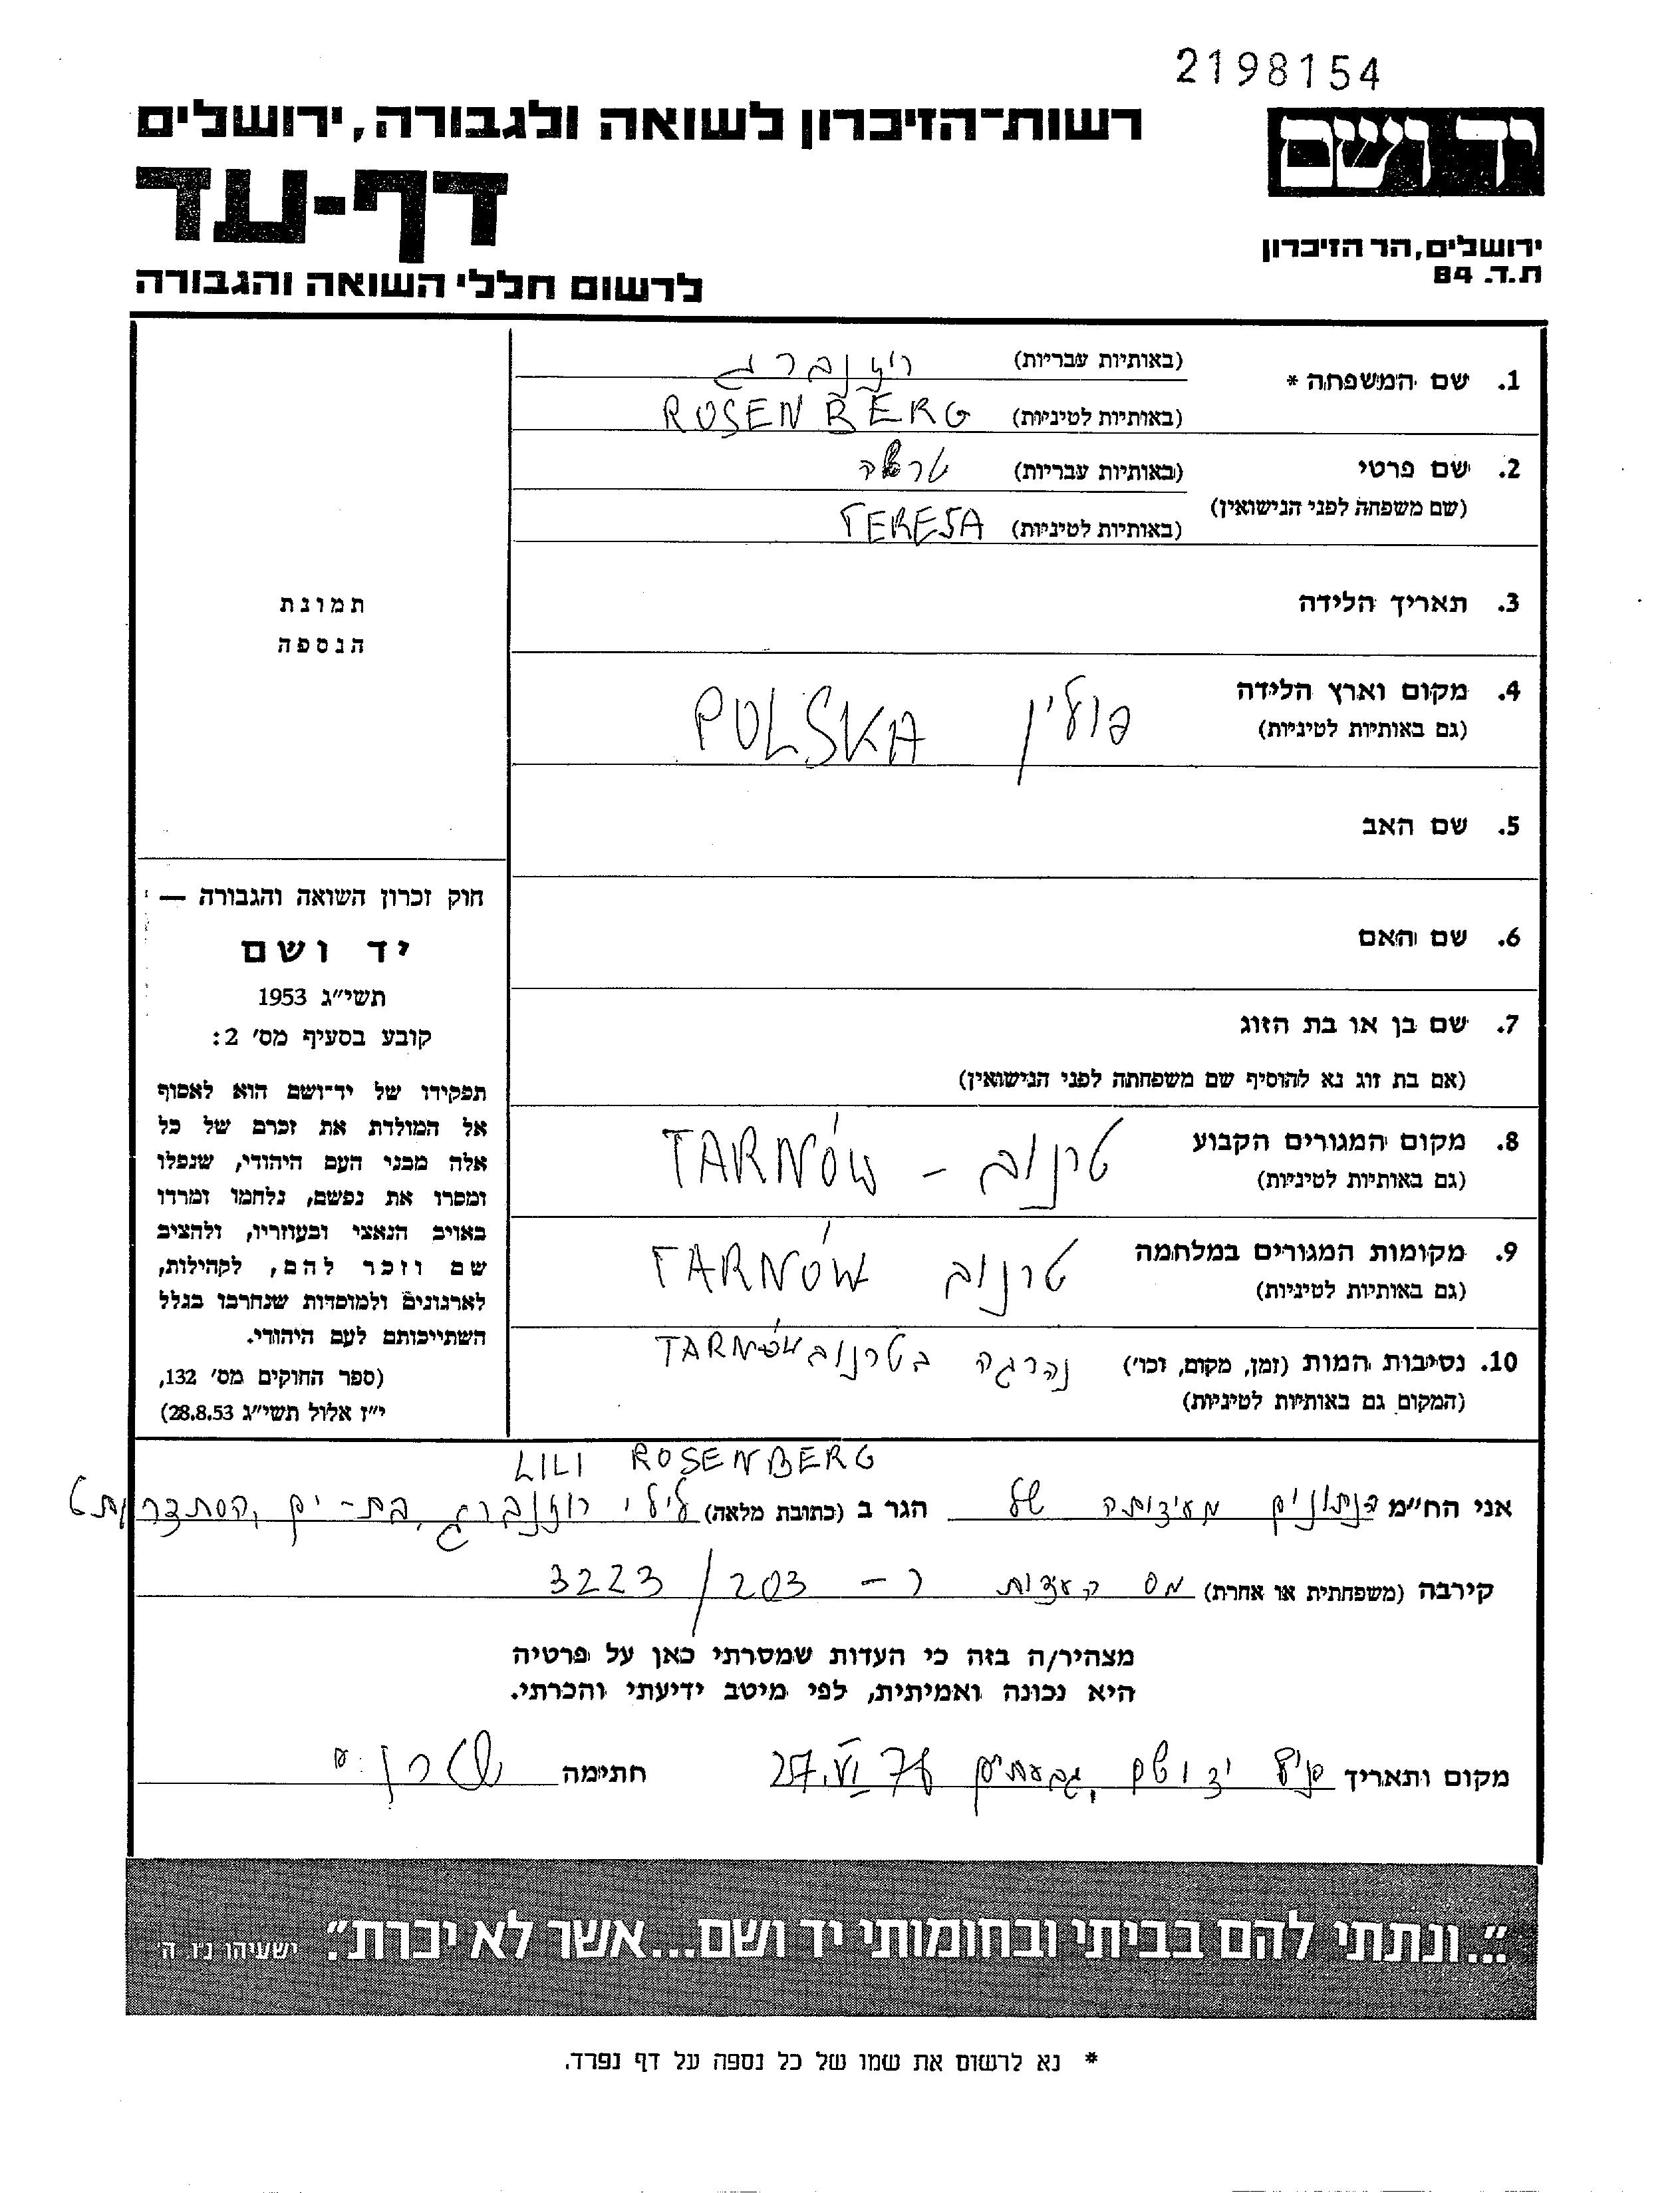 2198154
רשות־הזיכרון לשואה ולגבורה, ירושלים
יד ושם
דף-עד
ירושלים, הר הזיכרון
ת.ד. 84
לרשום חללי השואה והגבורה
1. שם המשפחה * (באותיות עבריות) רוזנברג
(באותיות לטיניות) ROSENBERG
2. שם פרטי (באותיות עבריות)
(שם משפחה לפני הנישואין) (באותיות לטיניות) TERESA
3. תאריך הלידה
4. מקום וארץ הלידה פולין POLSKA
(גם באותיות לטיניות)
5. שם האב
6. שם האם
7. שם בן או בת הזוג
(אם בת זוג נא להוסיף שם משפחתה לפני הנישואין)
8. מקום המגורים הקבוע טרנוב - TARNÓW
(גם באותיות לטיניות)
9. מקומות המגורים במלחמה טרנוב TARNÓW
(גם באותיות לטיניות)
10. נסיבות המות (זמן, מקום, וכו') נהרגה בטרנוב TARNÓW
(המקום גם באותיות לטיניות)
תמונת
הנספה
חוק זכרון השואה והגבורה —
יד ושם
תשי״ג 1953
קובע בסעיף מס׳ 2:
תפקידו של יד־ושם הוא לאסוף
אל המולדת את זכרם של כל
אלה מבני העם היהודי, שנפלו
ומסרו את נפשם, נלחמו ומרדו
באויב הנאצי ובעוזריו, ולהציב
שם וזכר להם, לקהילות,
לארגונים ולמוסדות שנחרבו בגלל
השתייכותם לעם היהודי.
(ספר החוקים מס׳ 132,
י״ז אלול תשי״ג 28.8.53)
LILI ROSENBERG
אני הח״מ הנתונים מעידותה של הגר ב (כתובת מלאה) לילי רוזנברג, בת-ים, הסתדרות
קירבה (משפחתית או אחרת) מס העדות ר- 3223/203
מצהיר/ה בזה כי העדות שמסרתי כאן על פרטיה
היא נכונה ואמיתית, לפי מיטב ידיעתי והכרתי.
מקום ותאריך יד ושם, גבעתיים 27.VI.78 חתימה
״...ונתתי להם בביתי ובחומותי יד ושם...אשר לא יכרת״. ישעיהו נ׳ו, ה׳
* נא לרשום את שמו של כל נספה על דף נפרד.